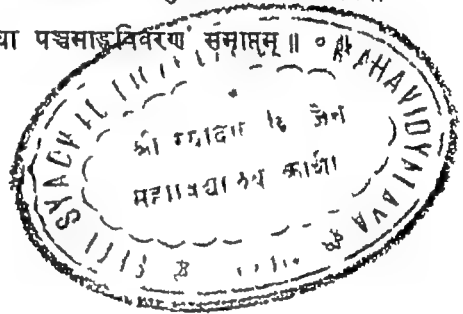 या पञ्चमाङ्गविवरणं समाप्तम् ॥ ० ॥
MAHAVIDYALAYA
श्री स्याद्वाद दि जैन
महाविद्यालय काशी